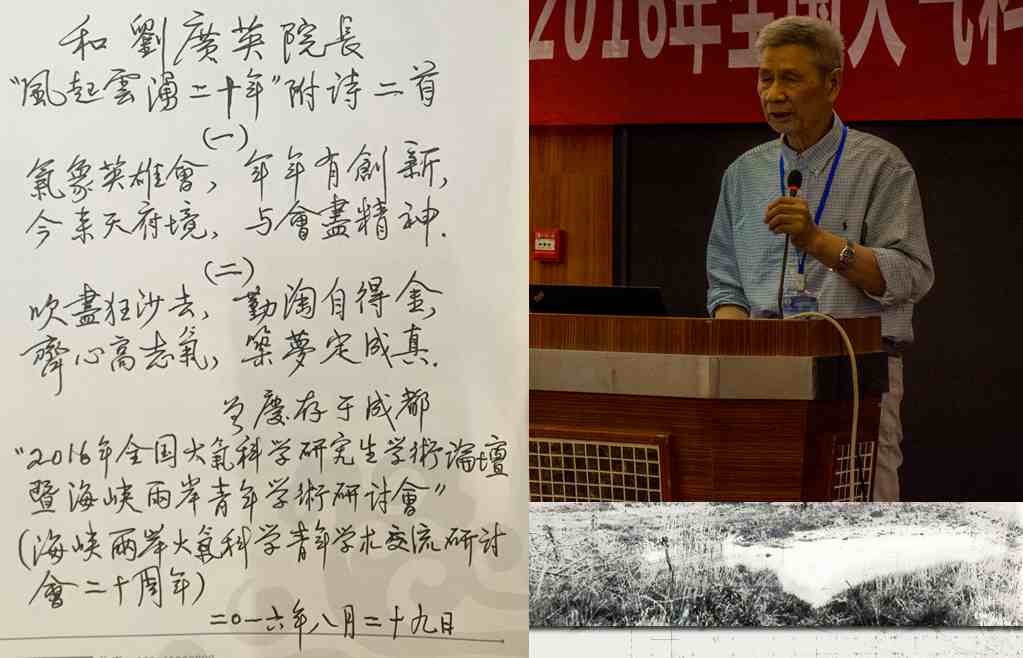 和劉廣英院長
"風起雲湧二十年"附诗二首
(一)
氣象英雄會，年年有創新，
今来天府境，与會盡精神.
(二)
吹盡狂沙去，勤淘自得金，
齊心高志氣，築夢定成真.
曾慶存于成都
"2016年全国大氣科学研究生学術論壇
暨海峡兩岸青年学術研讨會"
(海峡兩岸大氣科学青年学术交流研讨
會二十周年)
二〇一六年八月二十九日
2016年全国大气科